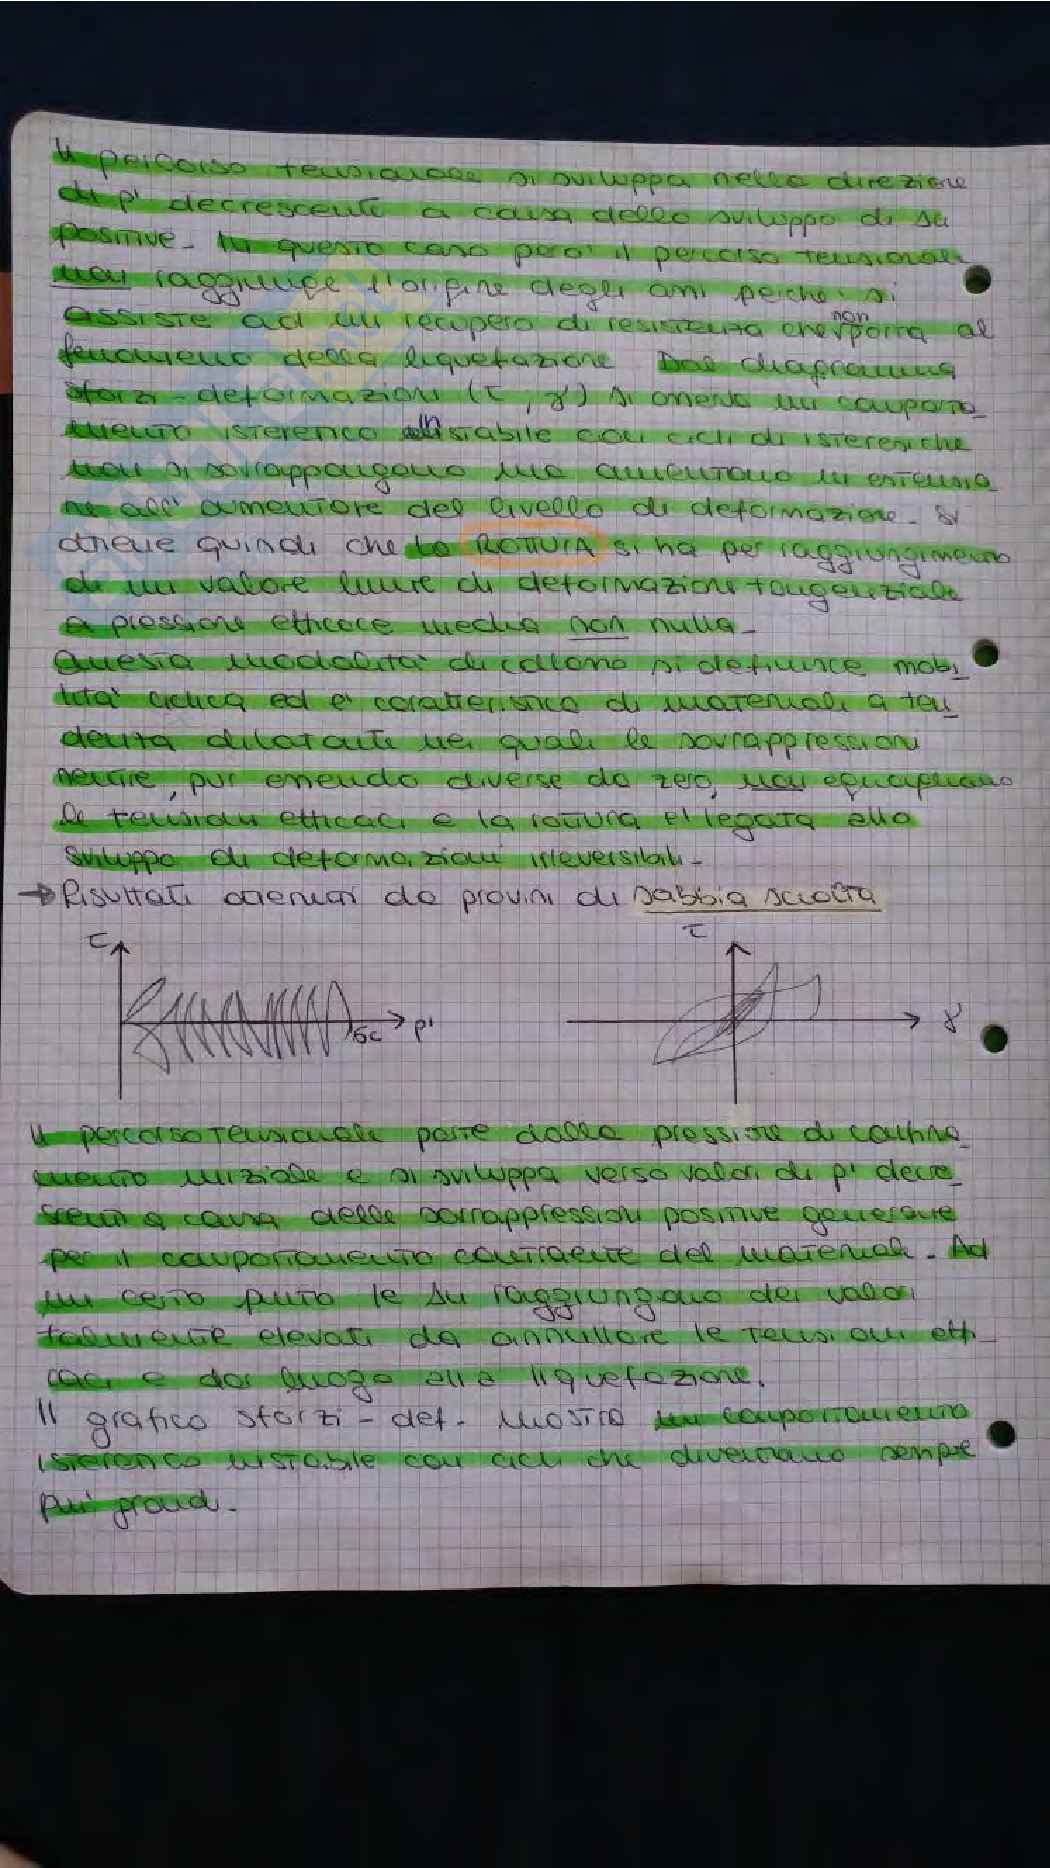 Il percorso tensionale si sviluppa nella direzione
di p' decrescenti a causa dello sviluppo di Δu
positive. In questo caso però il percorso tensionale
non raggiunge l'origine degli assi perché si
assiste ad un recupero di resistenza che non porta al
fenomeno della liquefazione. Dal diagramma
sforzi-deformazioni (τ, γ) si osserva un comporta_
mento isteretico instabile con cicli di isteresi che
non si sovrappongono ma aumentano in estensio_
ne all'aumentare del livello di deformazione. Si
ottiene quindi che la ROTTURA si ha per raggiungimento
di un valore limite di deformazione tangenziale
e pressione efficace media non nulla.
Questa modalità di collasso si definisce mobi_
lità ciclica ed è caratteristica di materiali a ten_
denza dilatante nei quali le sovrappressioni
neutre, pur essendo diverse da zero, non eguagliano
le tensioni efficaci e la rottura è legata allo
sviluppo di deformazioni irreversibili.
→ Risultati ottenuti da provini di sabbia sciolta
τ τ
σc p' γ
Il percorso tensionale parte dalla pressione di confina_
mento iniziale e si sviluppa verso valori di p' decre_
scenti a causa delle sovrappressioni positive generate
per il comportamento contraente del materiale. Ad
un certo punto le Δu raggiungono dei valori
talmente elevati da annullare le tensioni effi_
caci e dar luogo alla liquefazione.
Il grafico sforzi-def. mostra un comportamento
isteretico instabile con cicli che diventano sempre
più grandi.